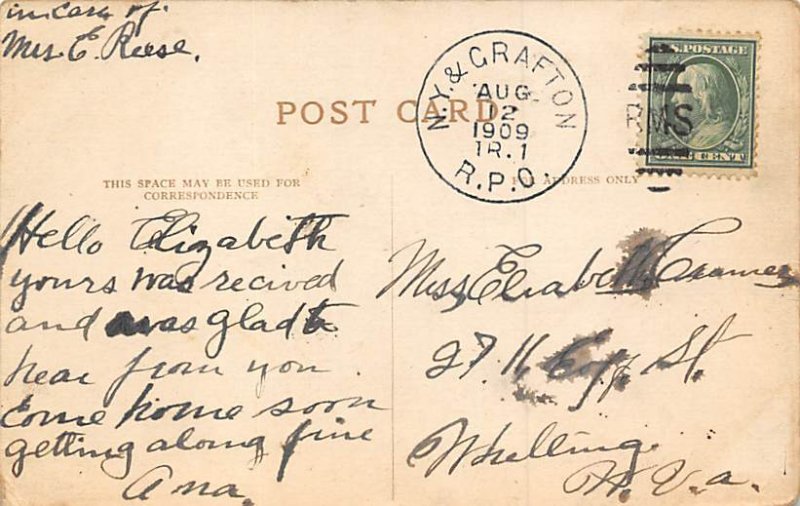 in care of
Mrs. E. Reese.
POST CARD.
N.Y. & GRAFTON
AUG
12
1909
TR.1
R.P.O.
RMS
U.S. POSTAGE
ONE CENT
THIS SPACE MAY BE USED FOR
CORRESPONDENCE
FOR ADDRESS ONLY
Hello Elizabeth
yours was recived
and was glad to
hear from you.
Come home soon
getting along fine
Ana.
Miss Elizabeth Cramer
27 St
Whelling
W. V.a.